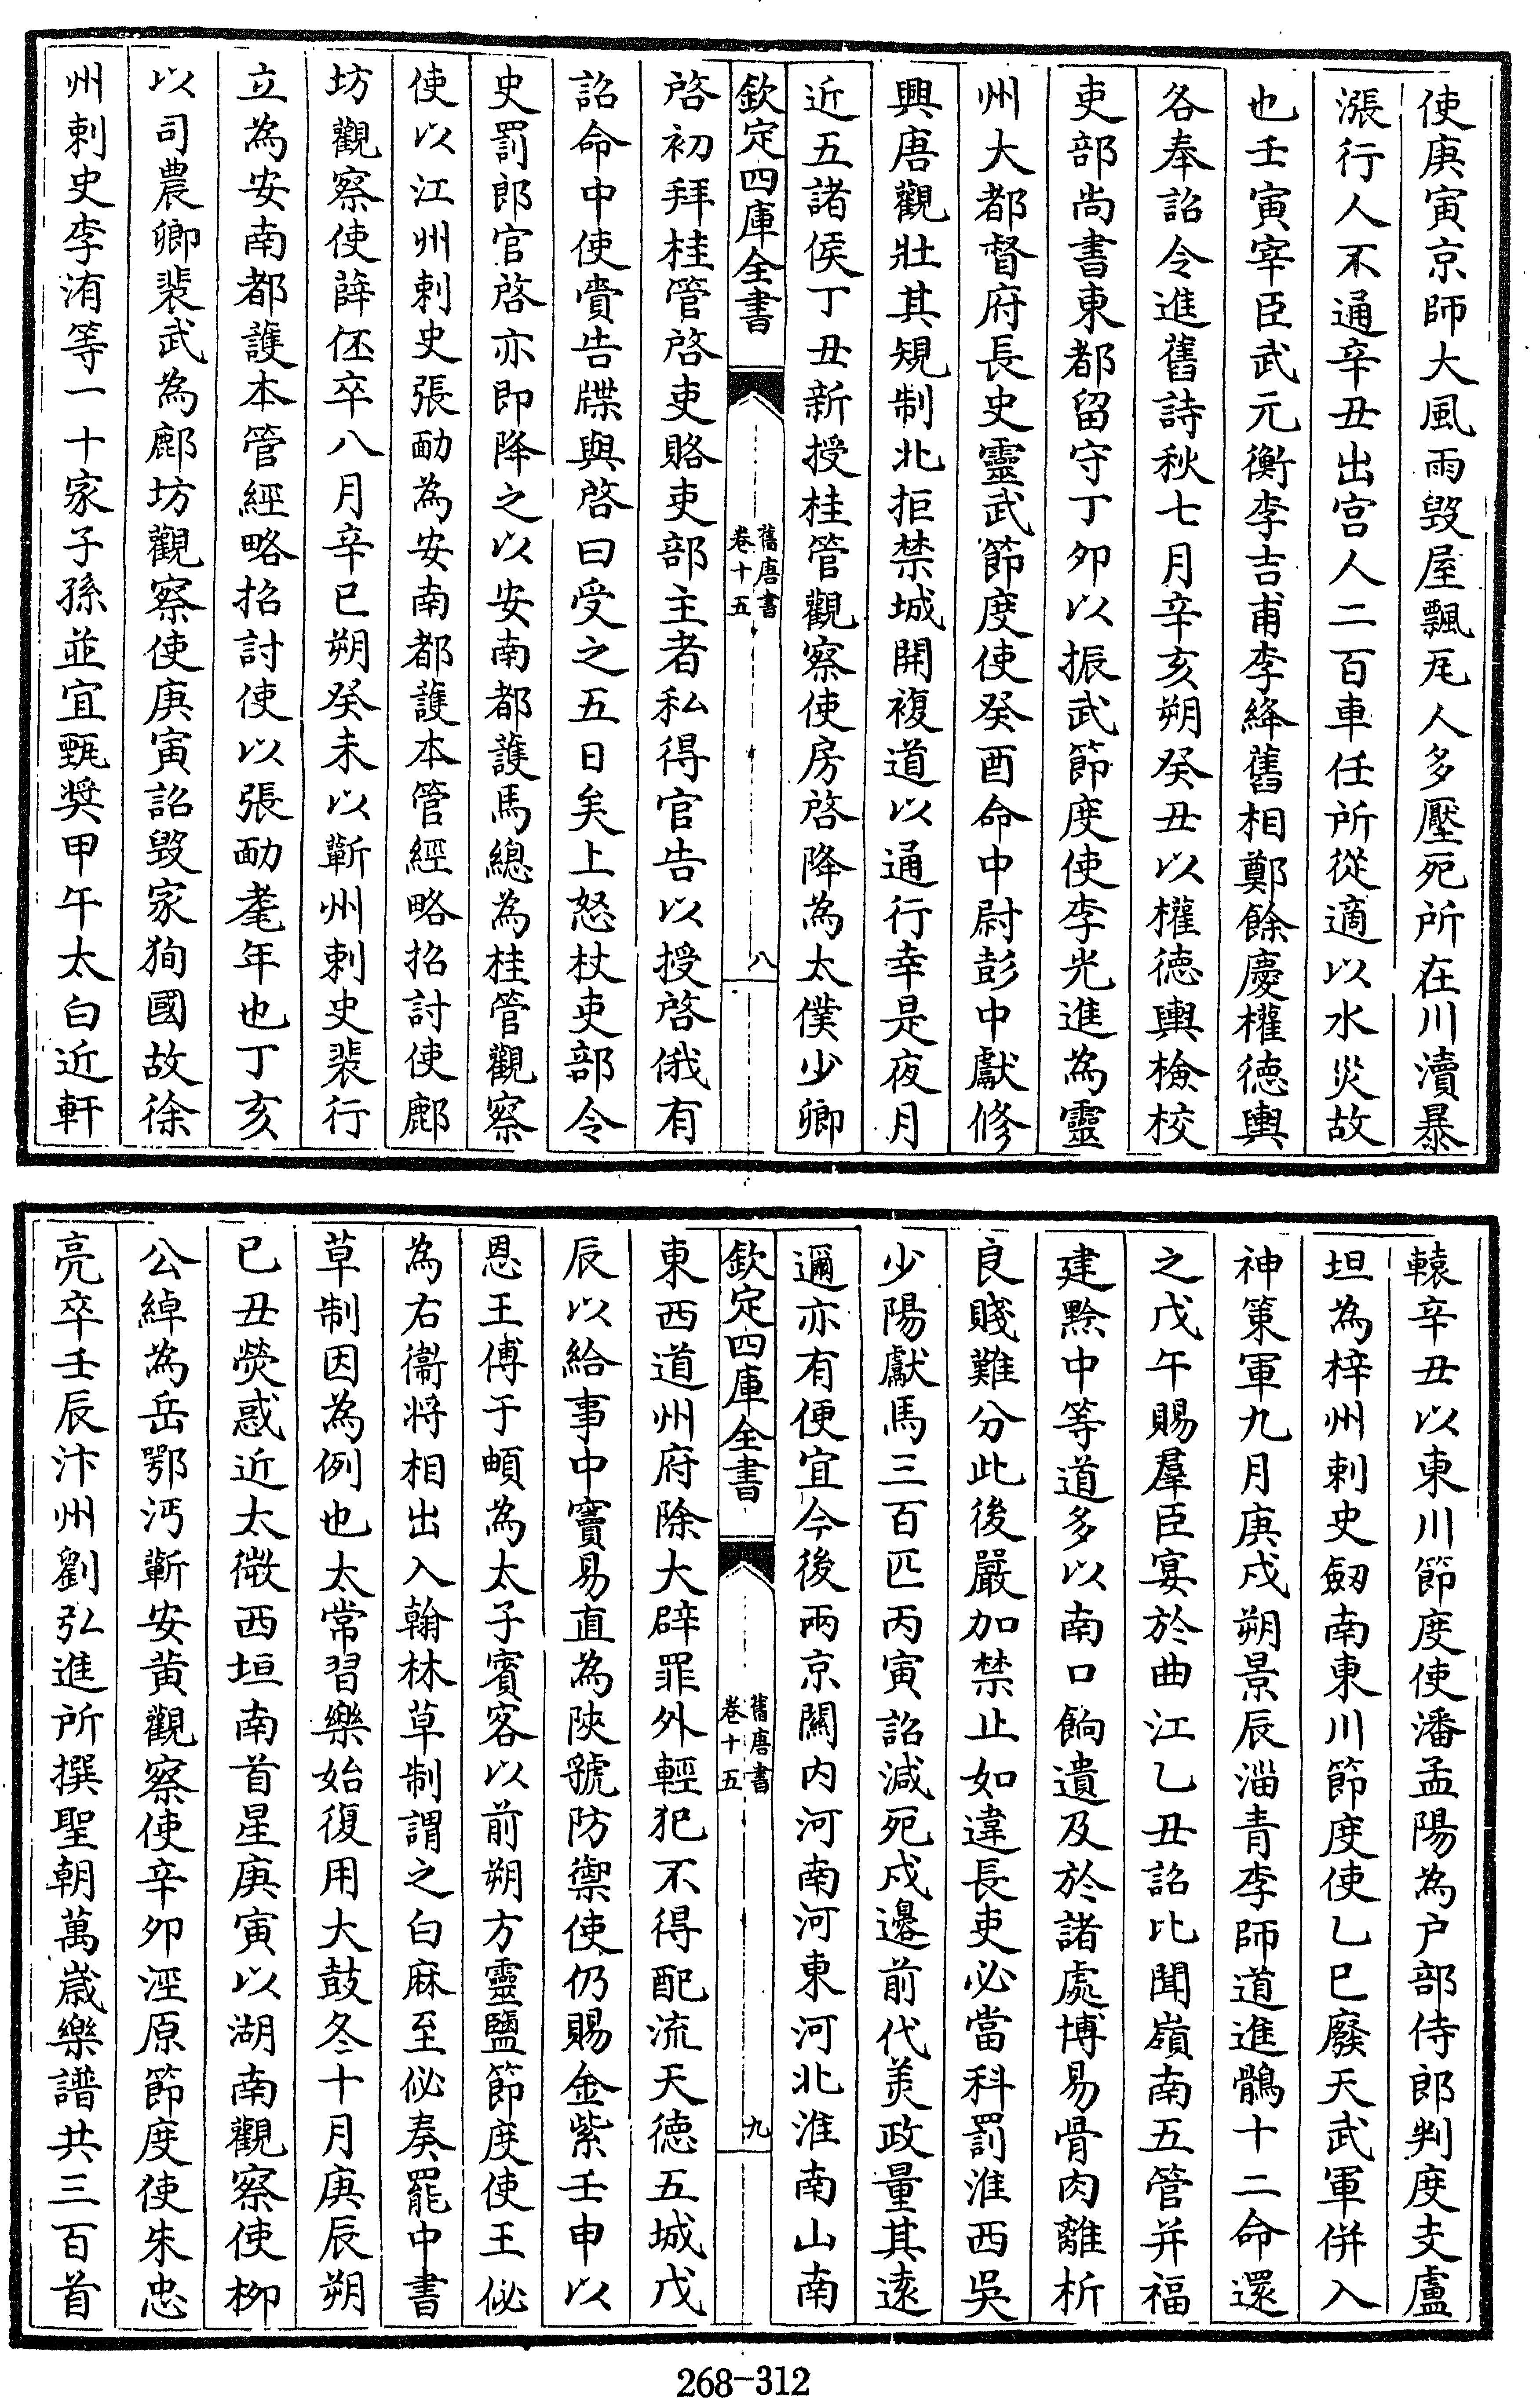 使庚寅京師大風雨毁屋飄瓦人多壓死所在川瀆暴
漲行人不通辛丑出宫人二百車任所從適以水災故
也壬寅宰臣武元衡李吉甫李絳舊相鄭餘慶權德輿
各奉詔令進舊詩秋七月辛亥朔癸丑以權德輿檢校
吏部尚書東都留守丁卯以振武節度使李光進為靈
州大都督府長史靈武節度使癸酉命中尉彭中獻修
興唐觀壯其規制北拒禁城開複道以通行幸是夜月
近五諸侯丁丑新授桂管觀察使房啓降為太僕少卿
欽定四庫全書
舊唐書
卷十五
八
啓初拜桂管啓吏賂吏部主者私得官告以授啓俄有
詔命中使賫告牒與啓曰受之五日矣上怒杖吏部令
史罰郎官啓亦即降之以安南都護馬總為桂管觀察
使以江州刺史張勔為安南都護本管經略招討使鄜
坊觀察使薛伾卒八月辛巳朔癸未以蘄州刺史裴行
立為安南都護本管經略招討使以張勔耄年也丁亥
以司農卿裴武為鄜坊觀察使庚寅詔毁家狥國故徐
州刺史李洧等一十家子孫並宜甄奬甲午太白近軒
轅辛丑以東川節度使潘孟陽為户部侍郎判度支盧
坦為梓州刺史劒南東川節度使乙巳廢天武軍併入
神策軍九月庚戌朔景辰淄青李師道進鶻十二命還
之戊午賜羣臣宴於曲江乙丑詔比聞嶺南五管并福
建黔中等道多以南口餉遺及於諸處博易骨肉離析
良賤難分此後嚴加禁止如違長吏必當科罰淮西吳
少陽獻馬三百匹丙寅詔減死戍邊前代美政量其逺
邇亦有便宜今後兩京關内河南河東河北淮南山南
欽定四庫全書
舊唐書
卷十五
九
東西道州府除大辟罪外輕犯不得配流天德五城戊
辰以給事中竇易直為陜虢防禦使仍賜金紫壬申以
恩王傅于頔為太子賓客以前朔方靈鹽節度使王佖
為右衞將相出入翰林草制謂之白麻至佖奏罷中書
草制因為例也太常習樂始復用大鼓冬十月庚辰朔
已丑熒惑近太微西垣南首星庚寅以湖南觀察使栁
公綽為岳鄂沔蘄安黄觀察使辛卯涇原節度使朱忠
亮卒壬辰汴州劉弘進所撰聖朝萬歳樂譜共三百首
268-312